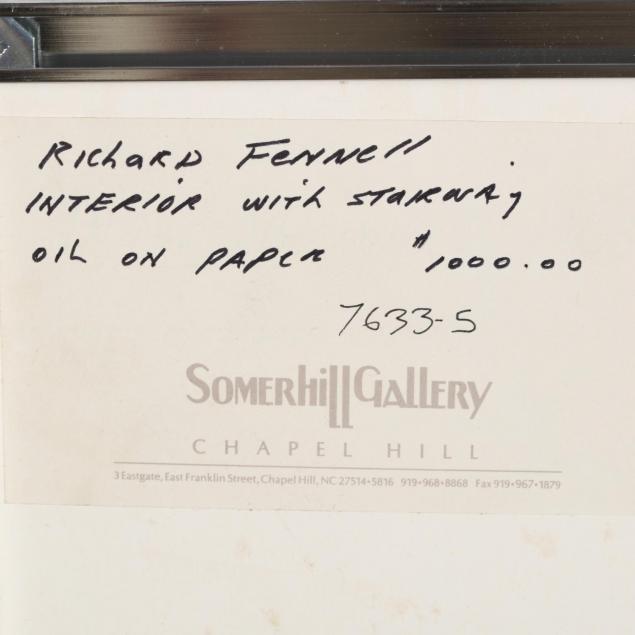 Richard Fennell
INTERIOR with STAIRWAy
OIL ON PAPER $1000.00
7633-S
SOMERhill GALLERY
CHAPEL HILL
3 Eastgate, East Franklin Street, Chapel Hill, NC 27514•5816 919•968•8868 Fax 919•967•1879